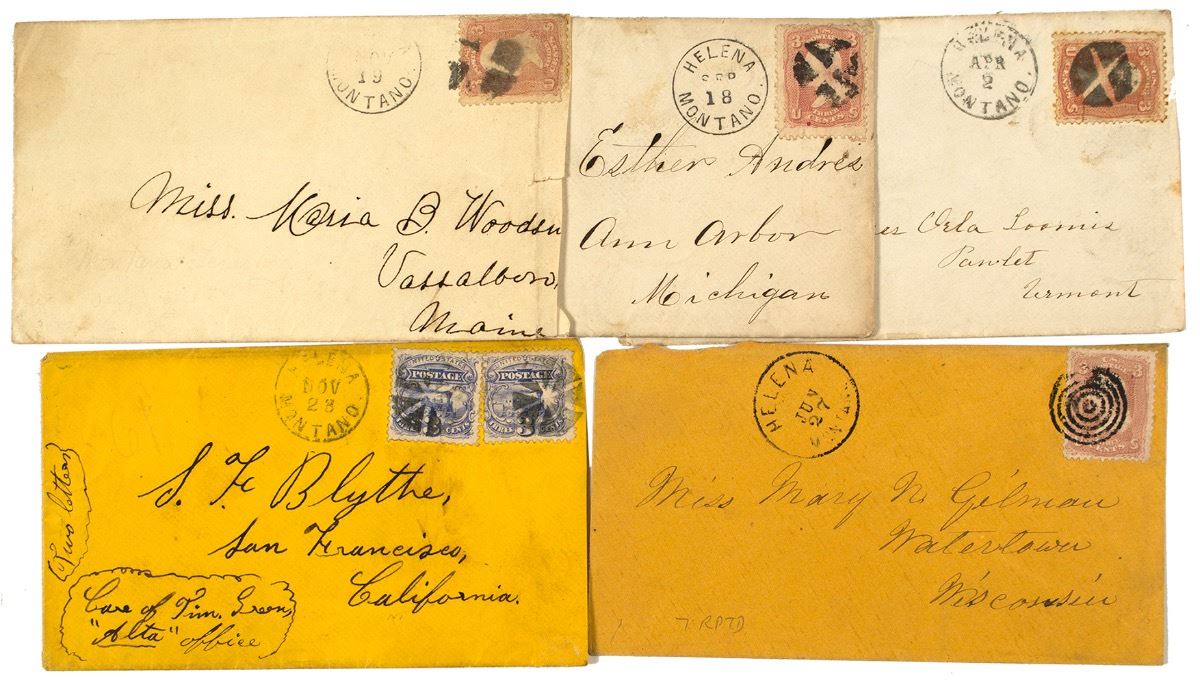 NOV
19
MONTANO.
Miss. Maria B. Woodsu
Vassalboro,
Maine
HELENA
SEP
18
MONTANO.
3 3
THREE
CENTS
Esther Andres
Ann Arbor
Michigan
HELENA
APR
2
MONTANO.
es Orla Loomis
Pawlet
Vermont
HELENA
NOV
23
MONTANO.
UNITED STATES
POSTAGE
UNITED STATES
POSTAGE
3
THREE CENTS
(Two letters)
S. F. Blythe,
San Francisco,
California.
Care of Tim. Green,
"Alta" office
HELENA
JUN
27
MONTANA
3
CENTS
Miss Mary N. Gilman
Watertown
Wisconsin
7 RPTD